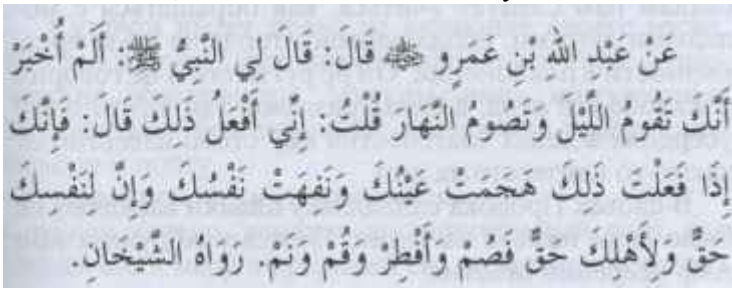 عَنْ عَبْدِ اللهِ بْنِ عَمْرٍو ﷺ قَالَ: قَالَ لِي النَّبِيُّ ﷺ: أَلَمْ أُخْبَرْ
أَنَّكَ تَقُومُ اللَّيْلَ وَتَصُومُ النَّهَارَ قُلْتُ: إِنِّي أَفْعَلُ ذَلِكَ قَالَ: فَإِنَّكَ
إِذَا فَعَلْتَ ذَلِكَ هَجَمَتْ عَيْنُكَ وَنَفِهَتْ نَفْسُكَ وَإِنَّ لِنَفْسِكَ
حَقٌّ وَلِأَهْلِكَ حَقٌّ فَصُمْ وَأَفْطِرْ وَقُمْ وَنَمْ. رَوَاهُ الشَّيْخَانِ.